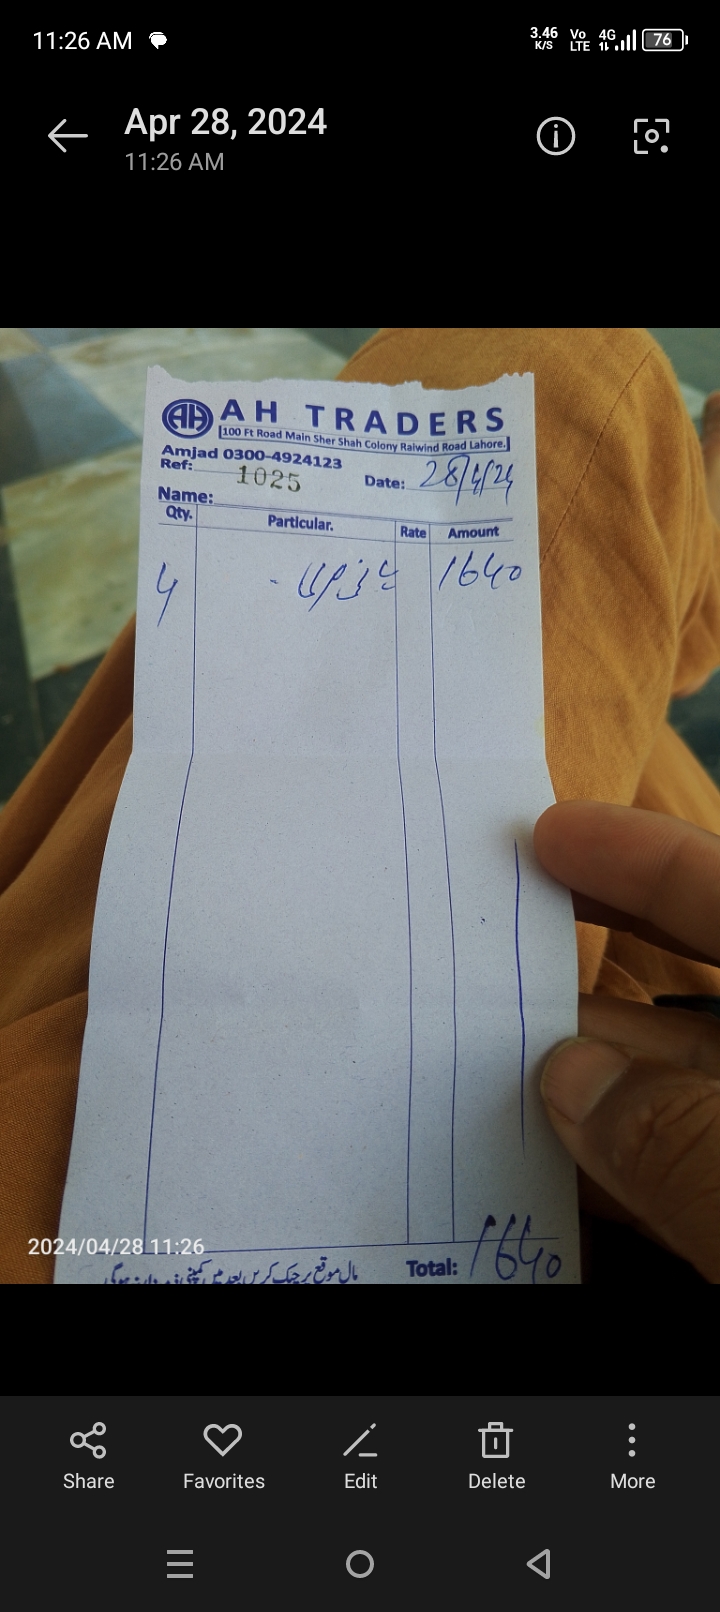 11:26 AM
3.46 K/S Vo LTE 4G 76
Apr 28, 2024
11:26 AM
AH AH TRADERS
100 Ft Road Main Sher Shah Colony Raiwind Road Lahore.
Amjad 0300-4924123
Ref: 1025 Date: 28/4/24
Name:
Qty. Particular. Rate Amount
4 1640
2024/04/28 11:26
مال موقع پر چیک کریں بعد میں کمپنی ذمہ دار نہ ہوگی
Total: 1640
Share Favorites Edit Delete More